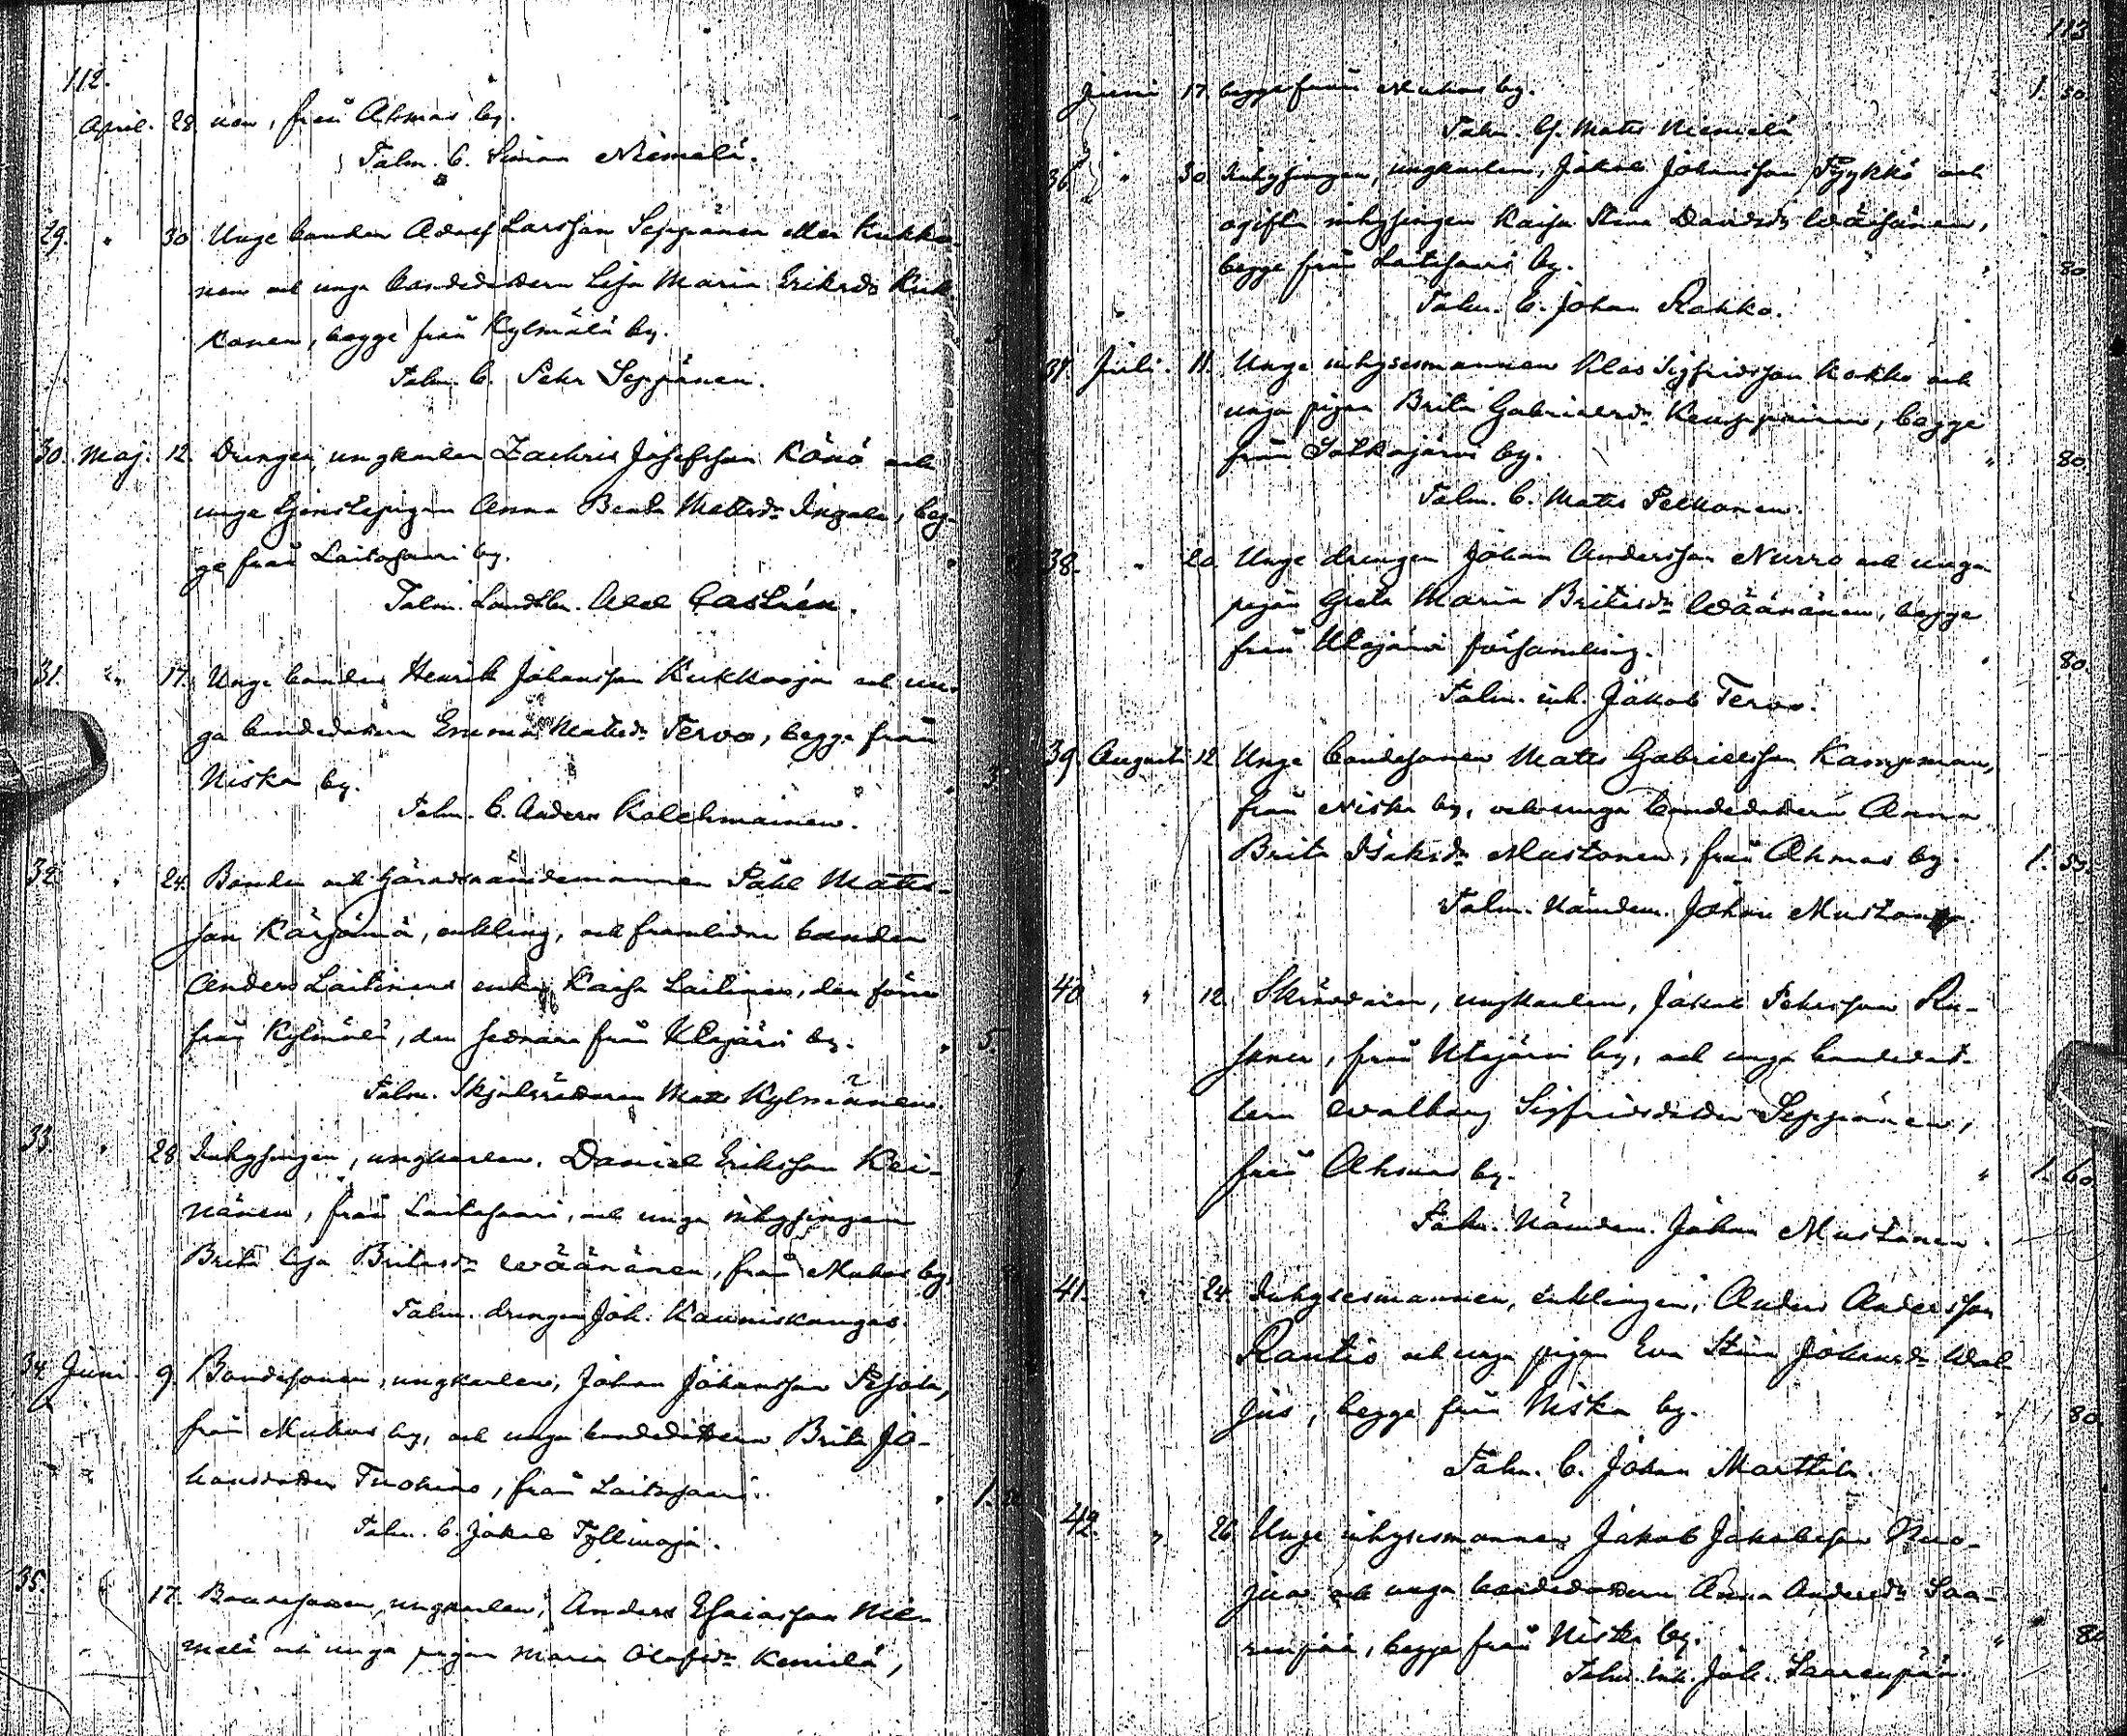 112.
April. 28. nen, från Ahmas by.
Talm. b. Simon Niemelä.
29. " 30. Unge bonden Adolf Larsson Seppänen eller Kukko-
nen och unga bondedottern Lisa Maria Eriksdr Kuk-
konen, begge från Kylmälä by. 3
Talm. b. Pehr Seppänen.
30. Maj. 12. Drengen, ungkarlen Zachris Josefsson Könö och
unga tjenstepigan Anna Beata Mattsdr Ingala, beg-
ge från Laitasaari by.
Talm. Landtbr. Abel Castrén.
31. " 17. Unge bonden Henrik Johansson Kukkaoja och un-
ga bondedottern Emma Mattsdr Tervo, begge från
Niska by. 3
Talm. b. Anders Kolehmainen.
32. " 24. Bonden och Häradsnämdemannen Påhl Matts-
son Kärjämä, enkling, och framlidne bonden
Anders Laitinens enka Kaisa Laitinen, den förre
från Kylmälä, den sednare från Utajärvi by. 5.
Talm. Skjutsrättaren Matts Kylmänen.
33. " 28. Inhysingen, ungkarlen, Daniel Eriksson Kei-
nänen, från Laitasaari, och unga inhysingen
Brita Lisa Britasdr Wäänänen, från Muhos by.
Talm. drengen Joh. Kauniskangas.
34. Juni. 9. Bondesonen, ungkarlen, Johan Johansson Pesola,
från Muhos by, och unga bondedottern Brita Jo-
hansdotter Tuohino, från Laitasaari. 1.
Talm. b. Jakob Tyllinoja.
35. " 17. Bondesonen, ungkarlen, Anders Esaiasson Nie-
melä och unga pigan Maria Olofsdr Kemilä,
113
Juni 17. begge från Muhos by. 1. 50
Talm. b. Matts Niemelä
36. " 30. Inhysingen, ungkarlen, Jakob Johansson Pyykkö och
ogifta inhysingen Kaisa Stina Davidsdr Wäisänen,
begge från Laitasaari by. 80
Talm. b. Johan Rokko.
37. Juli. 11. Unge inhysesmannen Klas Sigfridsson Kokko och
unga pigan Brita Gabrielsdr Kemppainen, begge
från Sotkajärvi by. " 80.
Talm. b. Matts Pelkonen.
38. " 20. Unge drengen Johan Andersson Nurro och unga
pigan Greta Maria Britasdr Wäänänen, begge
från Utajärvi församling. 80.
Talm. inh. Jakob Tervo.
39. Augusti 12. Unge bondesonen Matts Gabrielsson Kampman,
från Niska by, och unga bondedottern Anna
Brita Isaksdr Mustonen, från Ahmas by. 1. 55.
Talm. Nämdem. Johan Mustonen.
40. " 12. Skräddaren, ungkarlen, Jakob Pehrsson Ru-
sanen, från Utajärvi by, och unga bondedot-
tern Walborg Sigfridsdotter Seppänen,
från Ahmas by. " 1. 60.
Talm. Nämdem. Johan Mustonen.
41. " 24. Inhysesmannen, enklingen, Anders Andersson
Rautio och unga pigan Eva Stina Johansdr Wal-
jus, begge från Niska by. 80.
Talm. b. Johan Marttila.
42. " 26. Unge inhysesmannen Jakob Jakobsson Nuo-
jua och unga bondedottern Anna Andersdr Saa-
renpää, begge från Niska by. " 80
Talm. inh. Joh. Saarenpää.